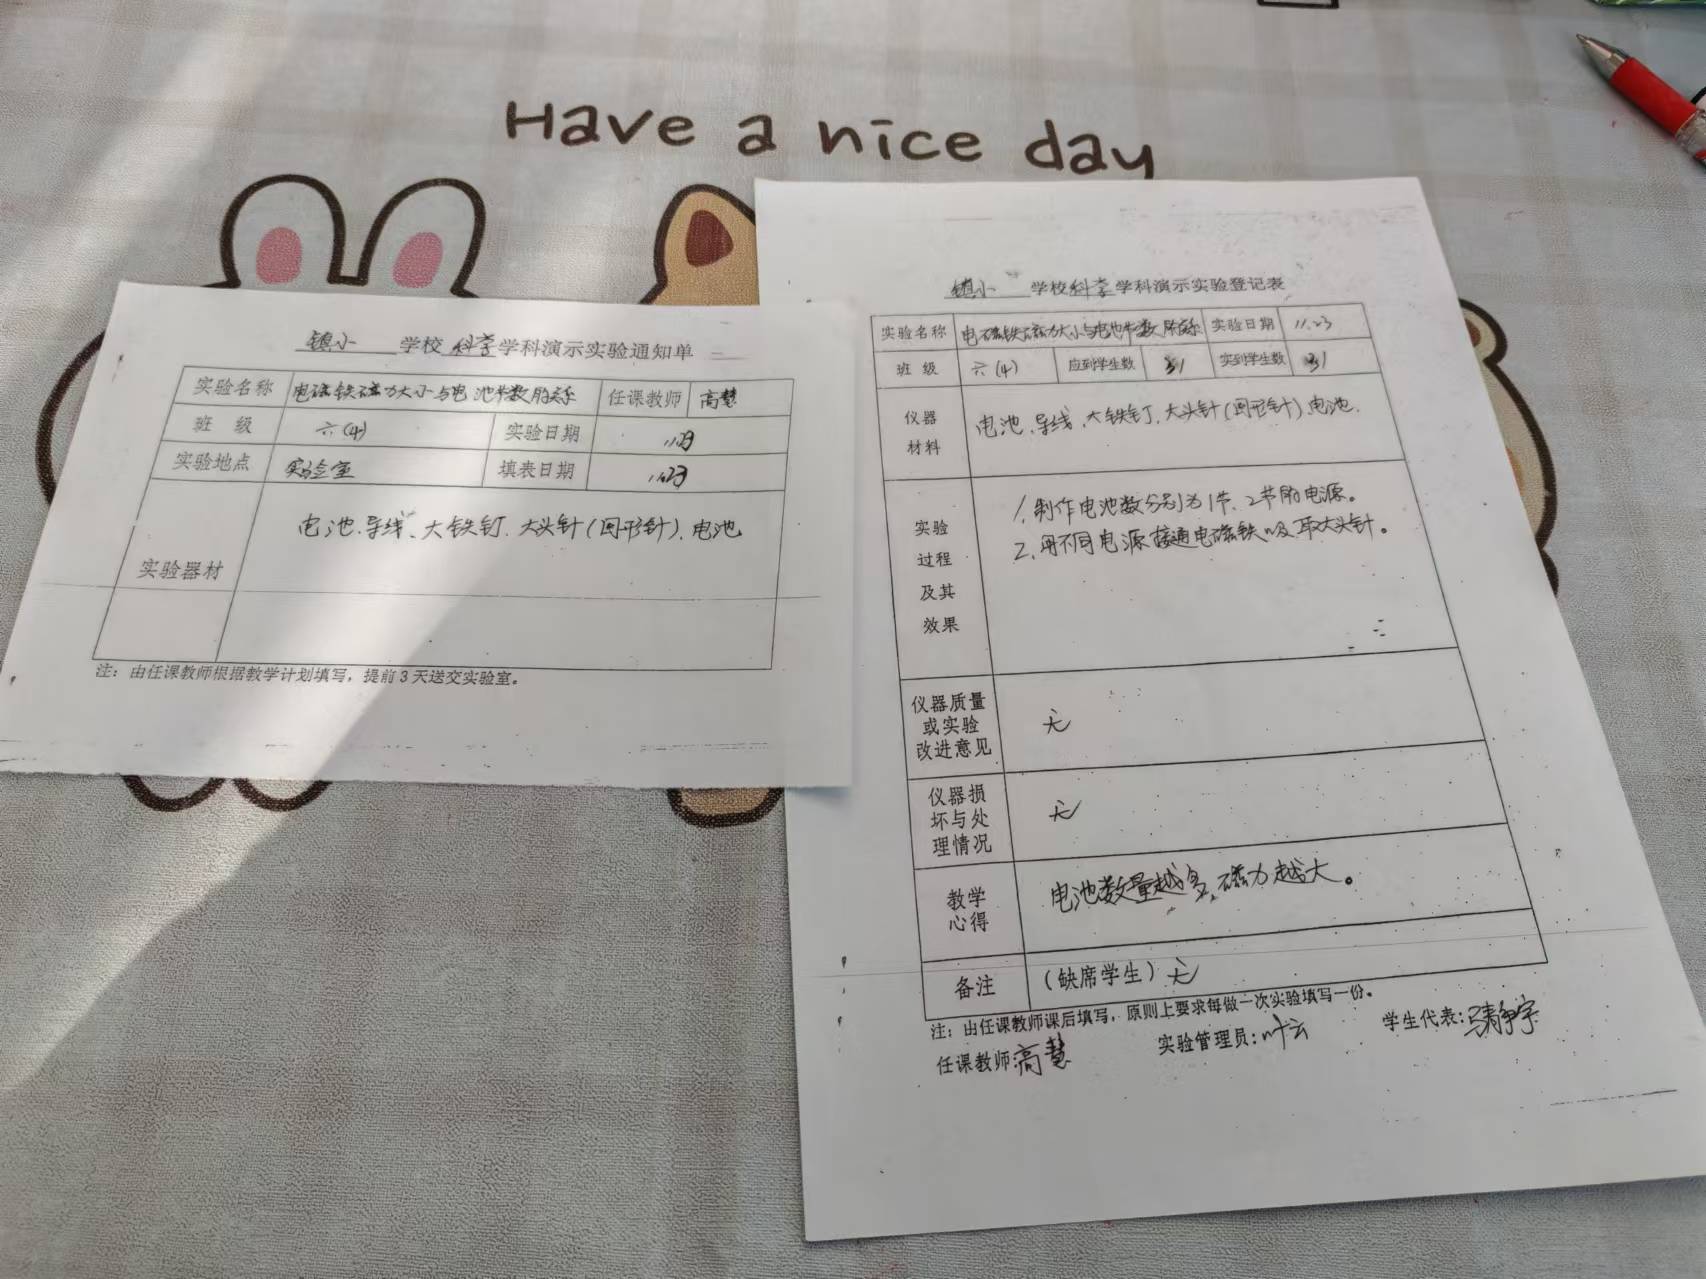 Have a nice day
镇小 学校科学学科演示实验通知单
实验名称 电磁铁磁力大小与电池节数的关系 任课教师 高慧
班 级 六(4) 实验日期
实验地点 实验室 填表日期
实验器材 电池、导线、大铁钉、大头针(回形针)、电池
注：由任课教师根据教学计划填写，提前3天送交实验室。
镇小 学校科学学科演示实验登记表
实验名称 电磁铁磁力大小与电池节数的关系 实验日期 11.23
班 级 六(4) 应到学生数 31 实到学生数 31
仪器材料 电池、导线、大铁钉、大头针(回形针)、电池.
实验过程及其效果
1、制作电池数分别为1节、2节的电源。
2、用不同电源接通电磁铁吸取大头针。
仪器质量或实验改进意见 无
仪器损坏与处理情况 无
教学心得 电池数量越多，磁力越大。
备注 (缺席学生) 无
注：由任课教师课后填写，原则上要求每做一次实验填写一份。
任课教师 高慧 实验管理员：叶云 学生代表：